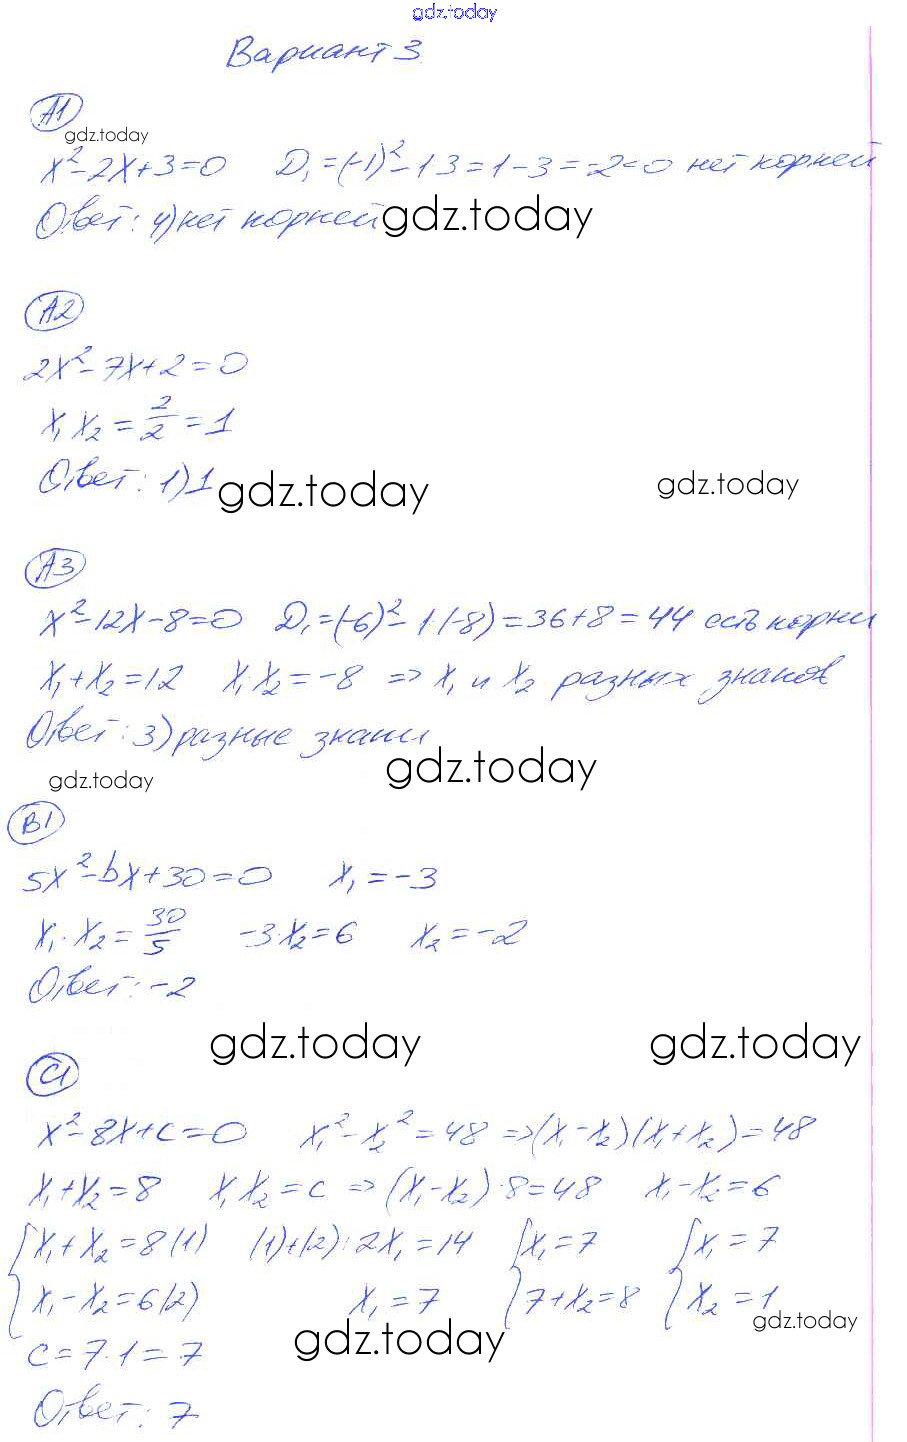 gdz.today
Вариант 3
A1
gdz.today
x² - 2x + 3 = 0 D₁ = (-1)² - 1·3 = 1 - 3 = -2 < 0 нет корней
Ответ: 4) нет корней gdz.today
A2
2x² - 7x + 2 = 0
x₁ x₂ = 2/2 = 1
Ответ: 1) 1 gdz.today gdz.today
A3
x² - 12x - 8 = 0 D₁ = (-6)² - 1·(-8) = 36 + 8 = 44 есть корни
x₁ + x₂ = 12 x₁ x₂ = -8 => x₁ и x₂ разных знаков
Ответ: 3) разные знаки
gdz.today gdz.today
B1
5x² - bx + 30 = 0 x₁ = -3
x₁ · x₂ = 30/5 -3·x₂ = 6 x₂ = -2
Ответ: -2
gdz.today gdz.today
C1
x² - 8x + c = 0 x₁² - x₂² = 48 => (x₁ - x₂)(x₁ + x₂) = 48
x₁ + x₂ = 8 x₁ x₂ = c => (x₁ - x₂) · 8 = 48 x₁ - x₂ = 6
{ x₁ + x₂ = 8 (1) (1)+(2): 2x₁ = 14 { x₁ = 7 { x₁ = 7
x₁ - x₂ = 6 (2) x₁ = 7 7 + x₂ = 8 x₂ = 1 gdz.today
c = 7·1 = 7 gdz.today
Ответ: 7